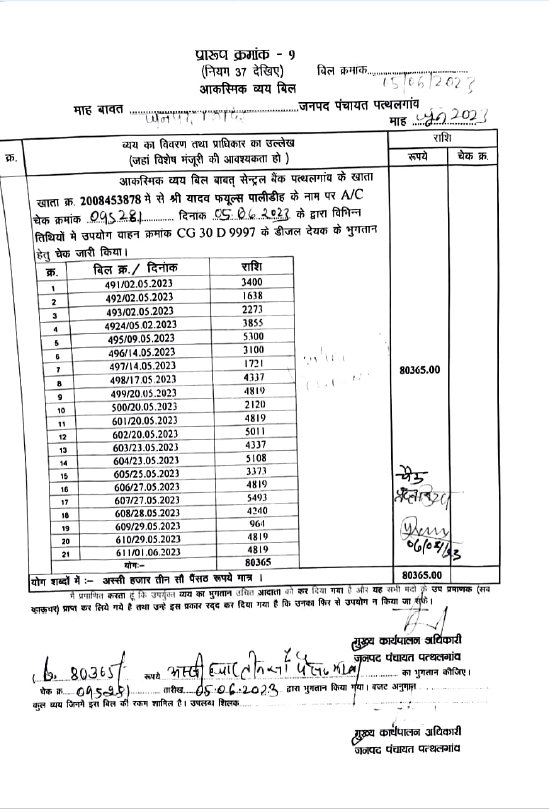 प्रारूप क्रमांक - 9
(नियम 37 देखिए) बिल क्रमांक 15/06/2023
आकस्मिक व्यय बिल
माह बाबत जनपद पंचायत पत्थलगांव
माह जून 2023
क्र. व्यय का विवरण तथा प्राधिकार का उल्लेख राशि
(जहां विशेष मंजूरी की आवश्यकता हो ) रूपये चेक क्र.
आकस्मिक व्यय बिल बाबत् सेन्ट्रल बैंक पत्थलगांव के खाता
खाता क्र. 2008453878 में से श्री यादव फयूल्स पालीडीह के नाम पर A/C
चेक क्रमांक 095281 दिनांक 05.06.2023 के द्वारा विभिन्न
तिथियों में उपयोग वाहन क्रमांक CG 30 D 9997 के डीजल देयक के भुगतान
हेतु चेक जारी किया।
क्र. बिल क्र./ दिनांक राशि
1 491/02.05.2023 3400
2 492/02.05.2023 1638
3 493/02.05.2023 2273
4 4924/05.02.2023 3855
5 495/09.05.2023 5300
6 496/14.05.2023 3100
7 497/14.05.2023 1721
8 498/17.05.2023 4337
9 499/20.05.2023 4819
10 500/20.05.2023 2120
11 601/20.05.2023 4819
12 602/20.05.2023 5011
13 603/23.05.2023 4337
14 604/23.05.2023 5108
15 605/25.05.2023 3373
16 606/27.05.2023 4819
17 607/27.05.2023 5493
18 608/28.05.2023 4240
19 609/29.05.2023 964
20 610/29.05.2023 4819
21 611/01.06.2023 4819
योगः- 80365
80365.00
चैक
योग शब्दों में :- अस्सी हजार तीन सौ पैंसठ रूपये मात्र । 80365.00
मै प्रमाणित करता हूं कि उपर्युक्त व्यय का भुगतान उचित आदाता को कर दिया गया है और यह सभी मदों के उप प्रमाणक (सब
व्हाऊचर) प्राप्त कर लिये गये है तथा उन्हे इस प्रकार रद्द कर दिया गया है कि उनका फिर से उपयोग न किया जा सके।
मुख्य कार्यपालन अधिकारी
जनपद पंचायत पत्थलगांव
80365/ रूपये का भुगतान कीजिए।
चेक क्र. 095281 तारीख 05.06.2023 द्वारा भुगतान किया गया। बजट अनुमान
कुल व्यय जिनमें इस बिल की रकम शामिल है। उपलब्ध शिलक
मुख्य कार्यपालन अधिकारी
जनपद पंचायत पत्थलगांव